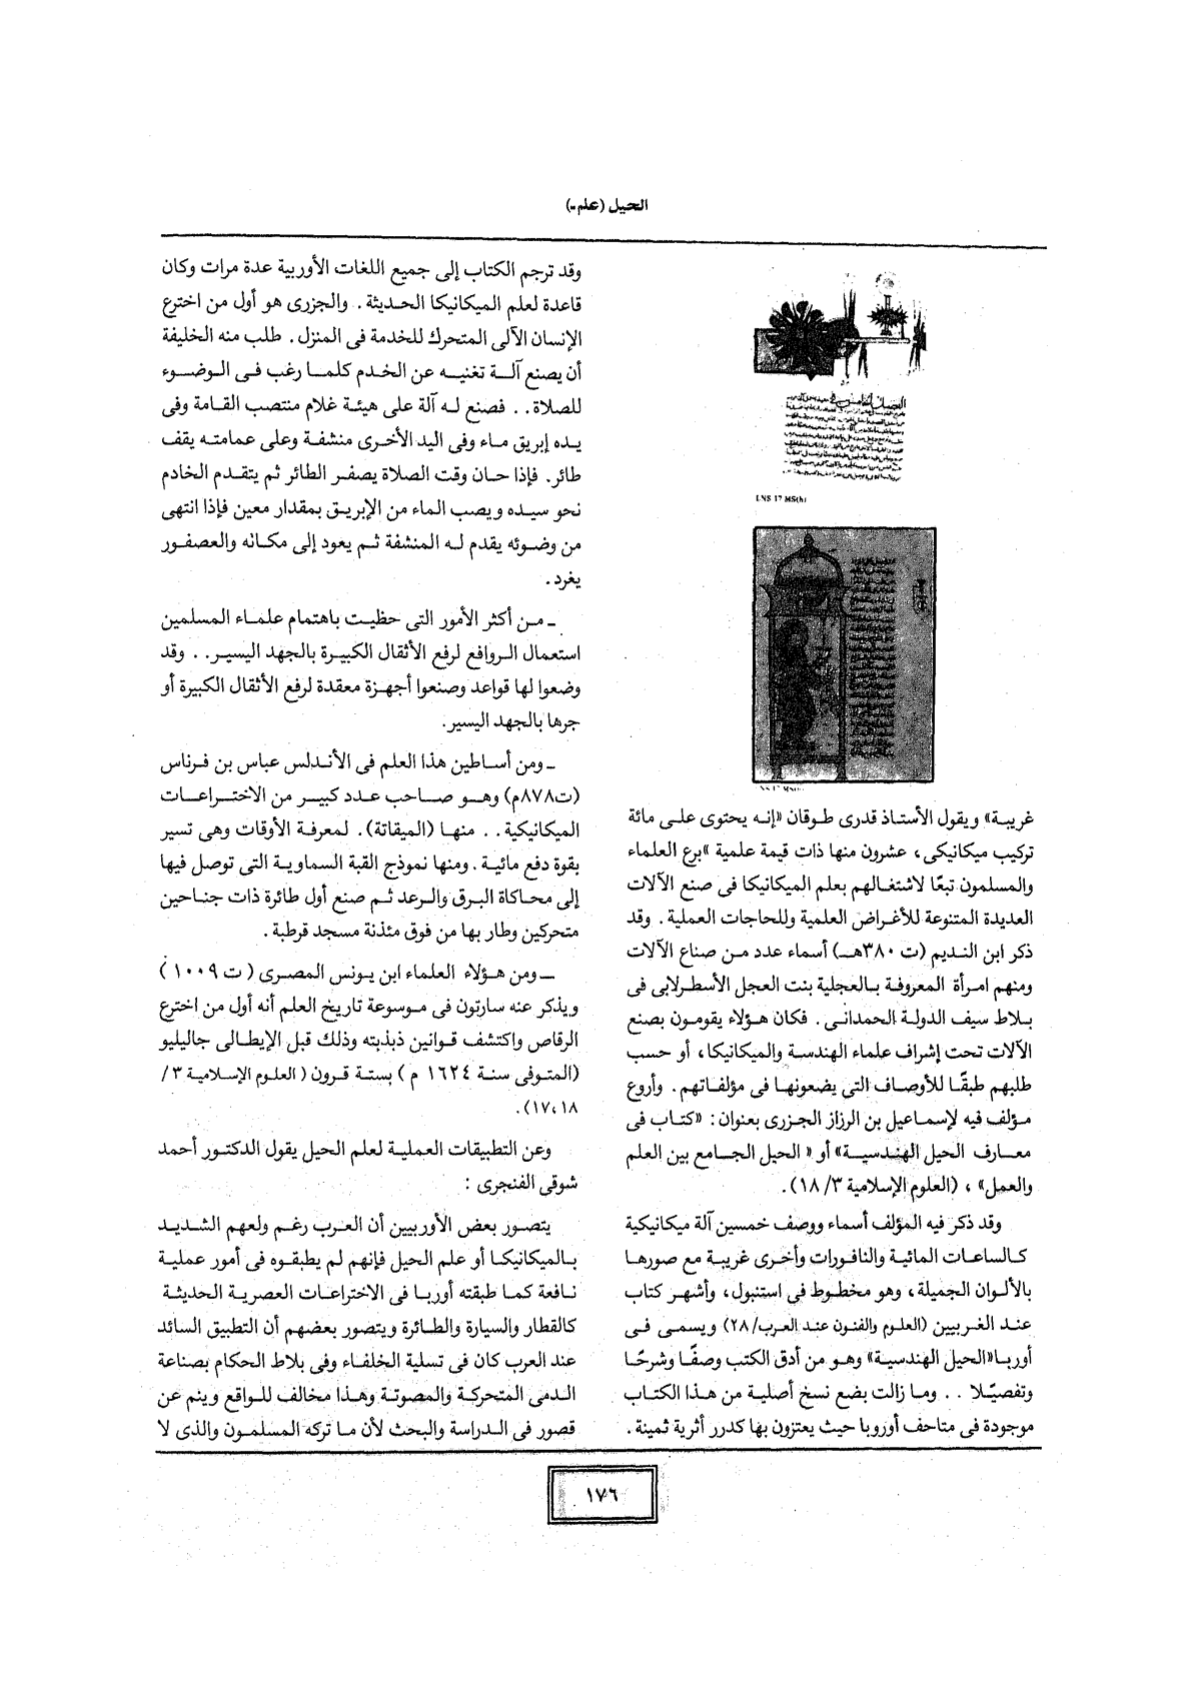 الحيل (علم-)
LNS 17 MS(h)
غريبة» ويقول الأستاذ قدرى طوقان «إنه يحتوى على مائة
تركيب ميكانيكى، عشرون منها ذات قيمة علمية »برع العلماء
والمسلمون تبعًا لاشتغالهم بعلم الميكانيكا فى صنع الآلات
العديدة المتنوعة للأغراض العلمية وللحاجات العملية. وقد
ذكر ابن النديم (ت ٣٨٠هـ) أسماء عدد من صناع الآلات
ومنهم امرأة المعروفة بالعجلية بنت العجل الأسطرلابى فى
بلاط سيف الدولة الحمدانى. فكان هؤلاء يقومون بصنع
الآلات تحت إشراف علماء الهندسة والميكانيكا، أو حسب
طلبهم طبقًا للأوصاف التى يضعونها فى مؤلفاتهم. وأروع
مؤلف فيه لإسماعيل بن الرزاز الجزرى بعنوان: «كتاب فى
معارف الحيل الهندسية» أو « الحيل الجامع بين العلم
والعمل» ، (العلوم الإسلامية ٣/ ١٨).
وقد ذكر فيه المؤلف أسماء ووصف خمسين آلة ميكانيكية
كالساعات المائية والنافورات وأخرى غريبة مع صورها
بالألوان الجميلة، وهو مخطوط فى استنبول، وأشهر كتاب
عند الغربيين (العلوم والفنون عند العرب/ ٢٨) ويسمى فى
أوربا«الحيل الهندسية» وهو من أدق الكتب وصفًا وشرحًا
وتفصيًلا .. وما زالت بضع نسخ أصلية من هذا الكتاب
موجودة فى متاحف أوروبا حيث يعتزون بها كدرر أثرية ثمينة.
وقد ترجم الكتاب إلى جميع اللغات الأوربية عدة مرات وكان
قاعدة لعلم الميكانيكا الحديثة. والجزرى هو أول من اخترع
الإنسان الآلى المتحرك للخدمة فى المنزل. طلب منه الخليفة
أن يصنع آلة تغنيه عن الخدم كلما رغب فى الوضوء
للصلاة.. فصنع له آلة على هيئة غلام منتصب القامة وفى
يده إبريق ماء وفى اليد الأخرى منشفة وعلى عمامته يقف
طائر. فإذا حان وقت الصلاة يصفر الطائر ثم يتقدم الخادم
نحو سيده ويصب الماء من الإبريق بمقدار معين فإذا انتهى
من وضوئه يقدم له المنشفة ثم يعود إلى مكانه والعصفور
يغرد.
ـ من أكثر الأمور التى حظيت باهتمام علماء المسلمين
استعمال الروافع لرفع الأثقال الكبيرة بالجهد اليسير.. وقد
وضعوا لها قواعد وصنعوا أجهزة معقدة لرفع الأثقال الكبيرة أو
جرها بالجهد اليسير.
ـ ومن أساطين هذا العلم فى الأندلس عباس بن فرناس
(ت٨٧٨م) وهو صاحب عدد كبير من الاختراعات
الميكانيكية.. منها (الميقاتة). لمعرفة الأوقات وهى تسير
بقوة دفع مائية. ومنها نموذج القبة السماوية التى توصل فيها
إلى محاكاة البرق والرعد ثم صنع أول طائرة ذات جناحين
متحركين وطار بها من فوق مئذنة مسجد قرطبة.
ـ ومن هؤلاء العلماء ابن يونس المصرى (ت ١٠٠٩ )
ويذكر عنه سارتون فى موسوعة تاريخ العلم أنه أول من اخترع
الرقاص واكتشف قوانين ذبذبته وذلك قبل الإيطالى جاليليو
(المتوفى سنة ١٦٢٤ م ) بستة قرون ( العلوم الإسلامية ٣/
١٧،١٨).
وعن التطبيقات العملية لعلم الحيل يقول الدكتور أحمد
شوقى الفنجرى :
يتصور بعض الأوربيين أن العرب رغم ولعهم الشديد
بالميكانيكا أو علم الحيل فإنهم لم يطبقوه فى أمور عملية
نافعة كما طبقته أوربا فى الاختراعات العصرية الحديثة
كالقطار والسيارة والطائرة ويتصور بعضهم أن التطبيق السائد
عند العرب كان فى تسلية الخلفاء وفى بلاط الحكام بصناعة
الدمى المتحركة والمصوتة وهذا مخالف للواقع وينم عن
قصور فى الدراسة والبحث لأن ما تركه المسلمون والذى لا
١٧٦